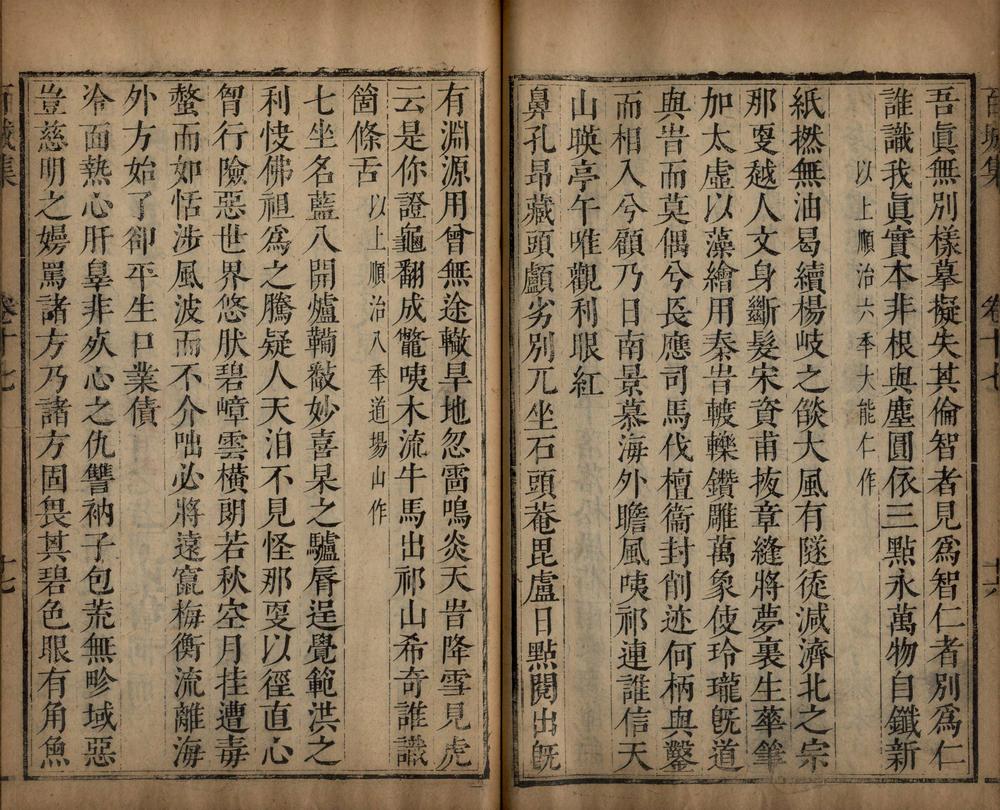 吾眞無別樣摹擬失其倫智者見爲智仁者別爲仁
誰識我眞實本非根與塵圓依三點永萬物自鑯新
以上順治六年大能仁作
紙撚無油曷續楊岐之燄大風有隧徒減濟北之宗
那𠭍越人文身斷髮宋資甫抜章縫將夢裏生華筆
加太虛以藻繪用秦旹轆轢鑽雕萬象使玲瓏旣道
與旹而莫偶兮長應司馬伐檀衞封削迹何柄與鑿
而相入兮顧乃日南景慕海外瞻風咦祁連誰信天
山暎亭午唯觀利眼紅
鼻孔昻藏頭顱劣別兀坐石頭菴毘盧日點閱出旣
有淵源用曾無途轍旱地忽雷鳴炎天旹降雪見虎
云是你證龜翻成鼈咦木流牛馬出祁山希奇誰識
箇條舌
以上順治八年道場山作
七坐名藍八開爐鞴敲妙喜杲之驢脣逞覺範洪之
利忮佛祖爲之騰疑人天洎不見怪那𠭍以徑直心
胷行險惡世界悠肰碧嶂雲橫朗若秋空月挂遭毒
螫而如恬涉風波而不介咄必將遠竄梅衡流離海
外方始了卻平生口業債
冷面熱心肝辠非殀心之仇讐衲子包荒無畛域惡
豈慈明之嫚罵諸方乃諸方固畏其碧色眼有角魚
卷十七
十六
卷十七
十七